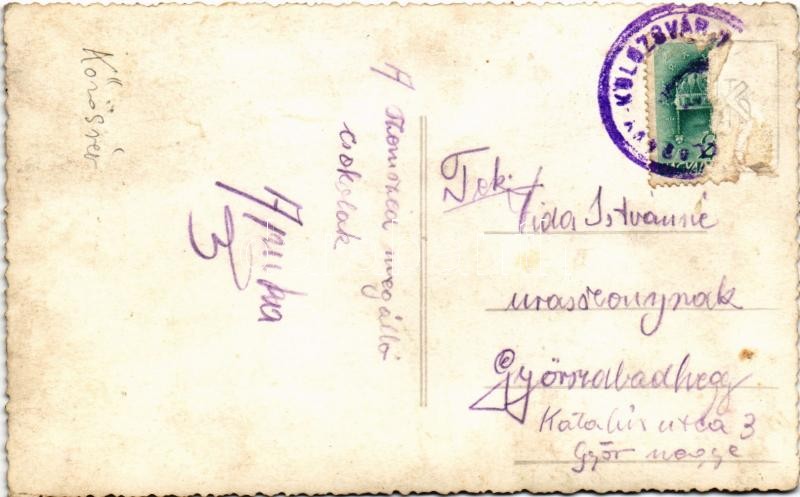 Kőrösrév
A szomszéd megálló
csokolak
Apuka
3
KOLOZSVÁR
Tek.
Vida Istvánné
urasszonynak
Győrszabadhegy
Katalin utca 3
Győr megye